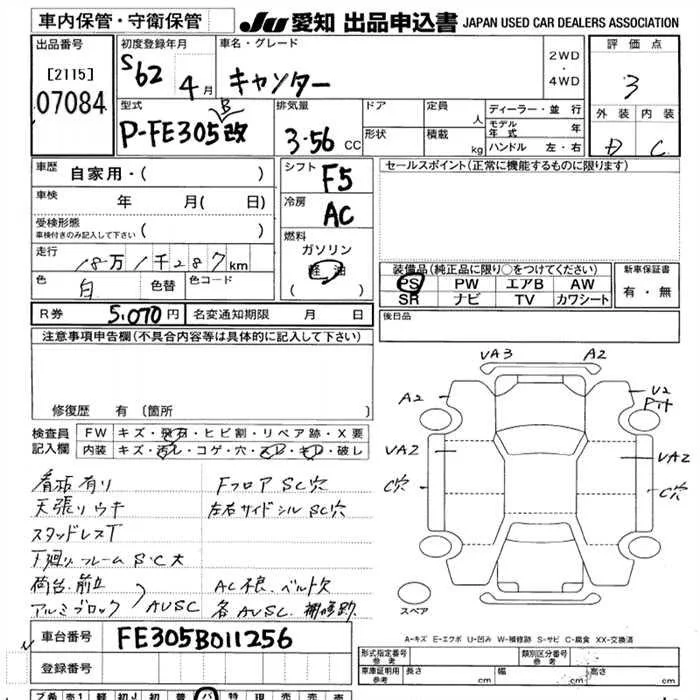 車内保管・守衛保管
JU 愛知 出品申込書 JAPAN USED CAR DEALERS ASSOCIATION
出品番号
[2115]
07084
初度登録年月
S62 4月
車名・グレード
キャンター
2WD
・
4WD
評価点
3
外装 内装
D C
型式
P-FE305B改
排気量
3.56 CC
ドア
定員 人
形状
積載 kg
ディーラー・並行
モデル年式 年
ハンドル 左・右
車歴 自家用・( )
車検 年 月( 日)
受検形態
車検付きのみ記入して下さい ( )
走行 18万1千287km
色 白 色替 色コード
シフト F5
冷房 AC
燃料
ガソリン
軽油
( )
セールスポイント(正常に機能するものに限ります)
装備品(純正品に限り○をつけてください)
PS PW エアB AW
SR ナビ TV カワシート
新車保証書
有・無
R券 5,070円 名変通知期限 月 日
後日品
注意事項申告欄(不具合内容等は具体的に記入して下さい)
修復歴 有 〔箇所 〕
検査員
記入欄
FW キズ・飛石・ヒビ割・リペア跡・X要
内装 キズ・汚レ・コゲ・穴・スレ・キレ・破レ
看板有り FフロアSC穴
天張リウキ 左右サイドシルSC穴
スタッドレスT
下廻りフレームS・C大
荷台.前立 AC不良.ベルト欠
アルミブロック AUSC 各AUSC.補修跡
VA3 A2
A2 U2
VA2 VA2
C穴 C穴
スペア
A-キズ E-エクボ U-凹み W-補修跡 S-サビ C-腐食 XX-交換済
車台番号 FE305B011256
登録番号
形式指定番号 参考
類別区分番号 参考
車庫証明用 参考 長さ cm 幅 cm 高さ cm